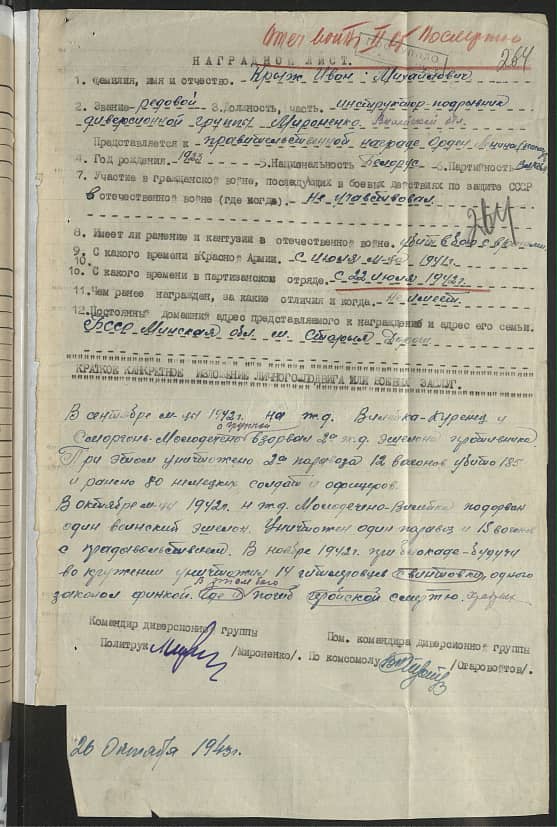 Отеч войны II ст. Посмертно
264
НАГРАДНОЙ ЛИСТ.
1. Фамилия, имя и отчество. Крыж Иван Михайлович
2. Звание редовой 3. Должность, часть. инструктор-подрывник
диверсионной группы Мироненко Вилейской обл.
Представляется к правительственной награде Орден
4. Год рождения. 1922 5. Национальность Белорус 6. Партийность
7. Участие в гражданской войне, последующих боевых действиях по защите СССР
в отечественной войне (где когда). Не учавствовал
264
8. Имеет ли ранение и кантузии в отечественной войне. убит в бою с
9. С какого времени вКрасной Армии. С Июня м-ца 1942г.
10. С какого времени в партизанском отряде. С 22 июня 1942г.
11. Чем ранее награжден, за какие отличия и когда. Не имеет.
12. Постоянный домашний адрес представляемого к награждению и адрес его семьи.
БССР Минская обл. м. Старые Дороги
КРАТКОЕ КАНКРЕТНОЕ ИЗЛОЖЕНИЕ ЛИЧНОГО ПОДВИГА ИЛИ БОЕВЫХ ЗАСЛУГ.
В сентябре м-це 1942г. на ж.д. Вилейка-Куренец и
с группой
Сморгонь-Молодечно взорвал 2а ж.д. эшелона противника.
При этом уничтожено 2а паравоза 12 вагонов убито 185
и ранено 80 немецких солдат и офицеров.
В октябре м-це 1942г. на ж.д. Молодечно-Вилейка подорван
один воинский эшелон. Уничтожен один паравоз и 15 вагонов
с прадовольствием. В ноябре 1942г. при блокаде будучи
во кружении уничтожил 14 гитлеровцев с винтовки, одного
заколол финкой. Где и погиб геройской смертью.
Командир диверсионной группы
Политрук /Мироненко/.
Пом. командира диверсионной группы
По комсомолу /Старовойтов/.
26 Октября 1943г.